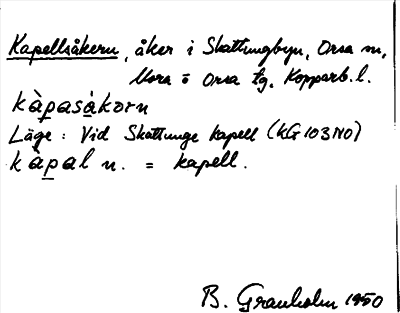 Kapellsåkern, åker i Skattungbyn, Orsa sn,
Mora o Orsa tg, Kopparb. l.
kàpasàkorn
Läge: Vid Skattunge kapell (KG 103 NO)
kàpal n. = kapell.
B. Granholm 1950